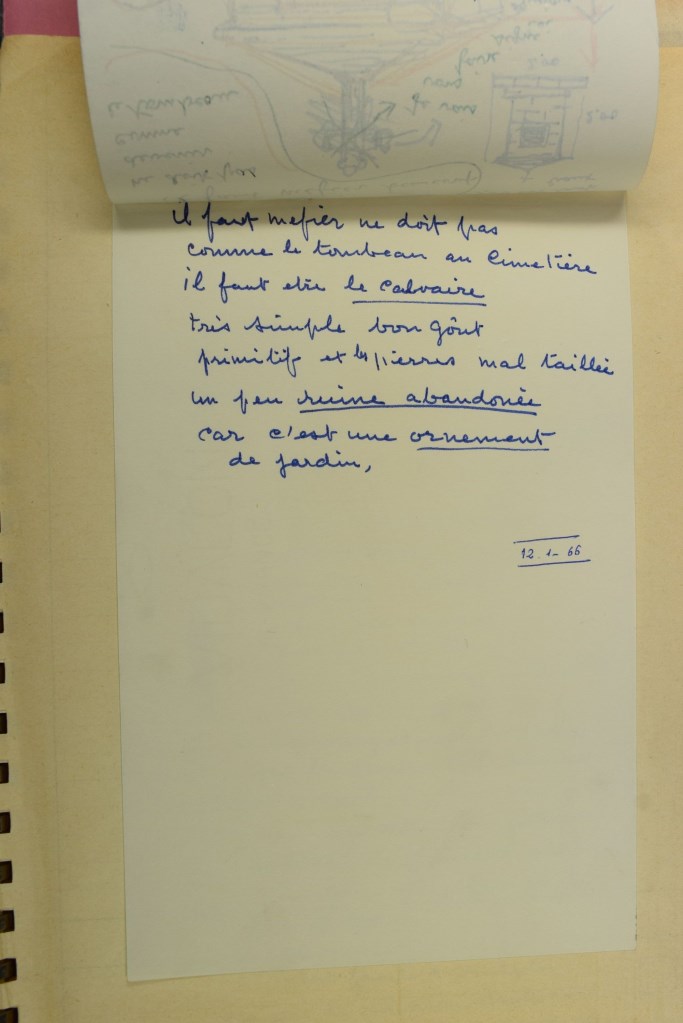 il faut mefier ne doit pas
comme le tombeau au Cimetière
il faut etre le Calvaire
très simple bon gôut
primitif et les pierres mal taillée
un peu ruine abandonée
car c'est une ornement
de jardin,
12.1-66